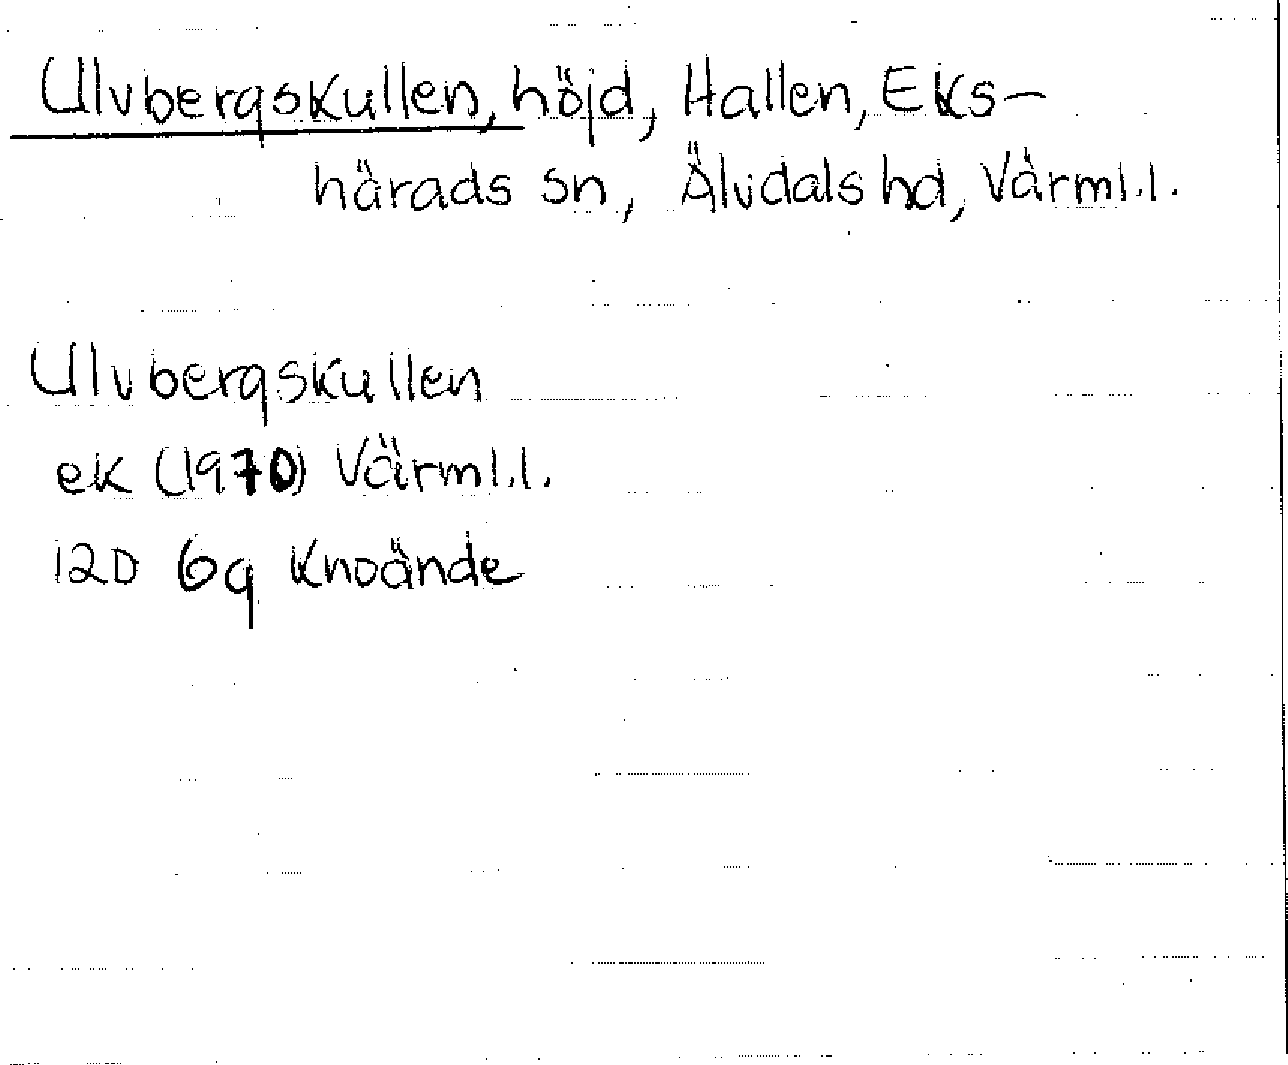 Ulvbergskullen, höjd, Hallen, Eks-
härads sn, Älvdals hd, Värml.l.
Ulvbergskullen
ek (1970) Värml.l.
12D 6g Knoände